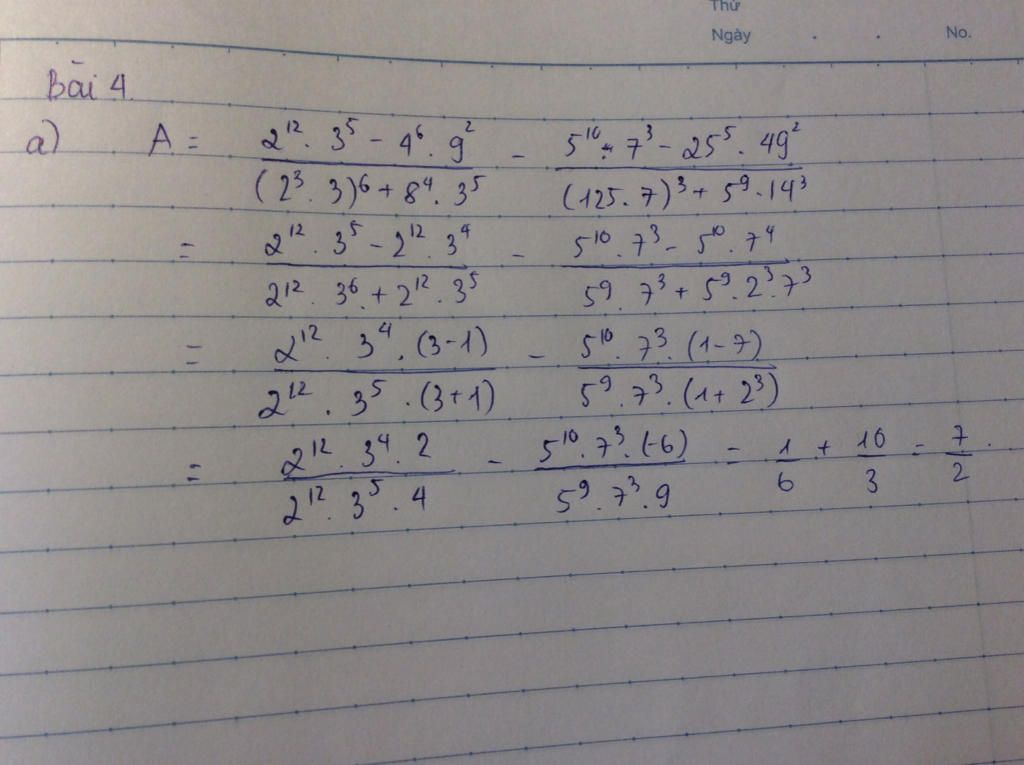 Thứ
Ngày . . No.
Bài 4
a) A = (2¹² . 3⁵ - 4⁶ . 9²)/((2³ . 3)⁶ + 8⁴ . 3⁵) - (5¹⁰ . 7³ - 25⁵ . 49²)/((125 . 7)³ + 5⁹ . 14³)
= (2¹² . 3⁵ - 2¹² . 3⁴)/(2¹² . 3⁶ + 2¹² . 3⁵) - (5¹⁰ . 7³ - 5¹⁰ . 7⁴)/(5⁹ . 7³ + 5⁹ . 2³ . 7³)
= (2¹² . 3⁴ . (3-1))/(2¹² . 3⁵ . (3+1)) - (5¹⁰ . 7³ . (1-7))/(5⁹ . 7³ . (1+2³))
= (2¹² . 3⁴ . 2)/(2¹² . 3⁵ . 4) - (5¹⁰ . 7³ . (-6))/(5⁹ . 7³ . 9) = 1/6 + 10/3 = 7/2 .